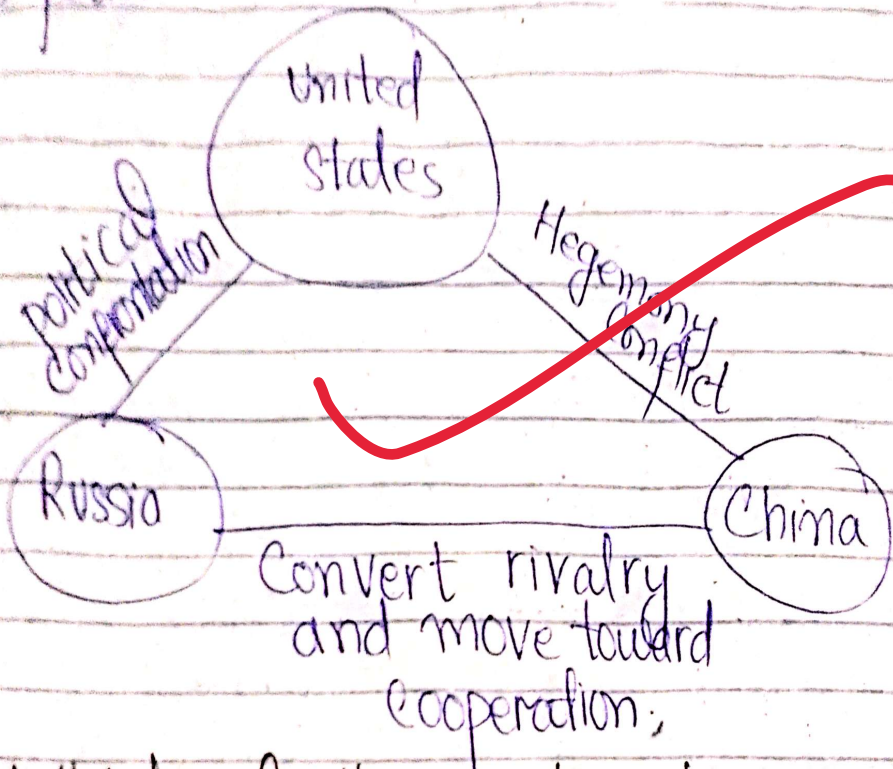 United
States
political
confrontation
Hegemony
Conflict
Russia
China
Convert rivalry
and move toward
cooperation,